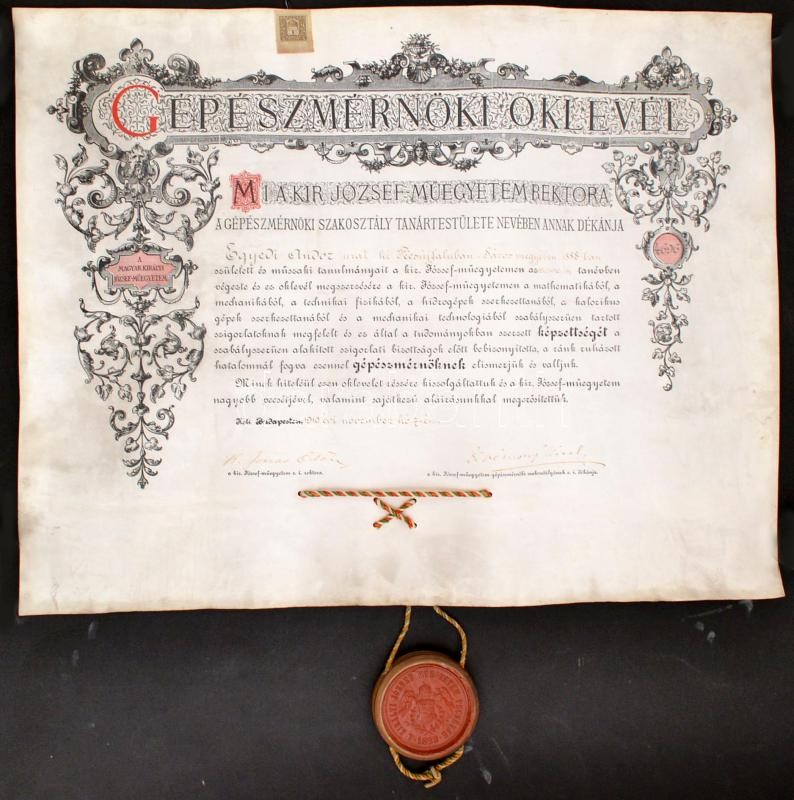 GÉPÉSZMÉRNÖKI OKLEVÉL
MI A KIR. JÓZSEF-MŰEGYETEM REKTORA,
A GÉPÉSZMÉRNÖKI SZAKOSZTÁLY TANÁRTESTÜLETE NEVÉBEN ANNAK DÉKÁNJA
A
MAGYAR KIRÁLYI
JÓZSEF-MŰEGYETEM.
Egyedi Andor urat ki Sáros megyében 188 ban
született és műszaki tanulmányait a kir. József-műegyetemen az tanévben
végezte és ez oklevél megszerzésére a kir. József-műegyetemen a mathematikából, a
mechanikából, a technikai fizikából, a hidrogépek szerkezettanából, a kalorikus
gépek szerkezettanából és a mechanikai technologiából szabályszerűen tartott
szigorlatoknak megfelelt és ez által a tudományokban szerzett képzettségét a
szabályszerűen alakított szigorlati bizottságok előtt bebizonyította, a ránk ruházott
hatalomnál fogva ezennel gépészmérnöknek elismerjük és valljuk.
Minek hiteléül ezen oklevelet részére kiszolgáltattuk és a kir. József-műegyetem
nagyobb pecsétjével, valamint sajátkezű aláírásunkkal megerősítettük.
Kelt Budapesten, 1910 évi november hó
a kir. József-műegyetem e. i. rektora.
a kir. József-műegyetem gépészmérnöki szakosztályának e. i. dékánja.